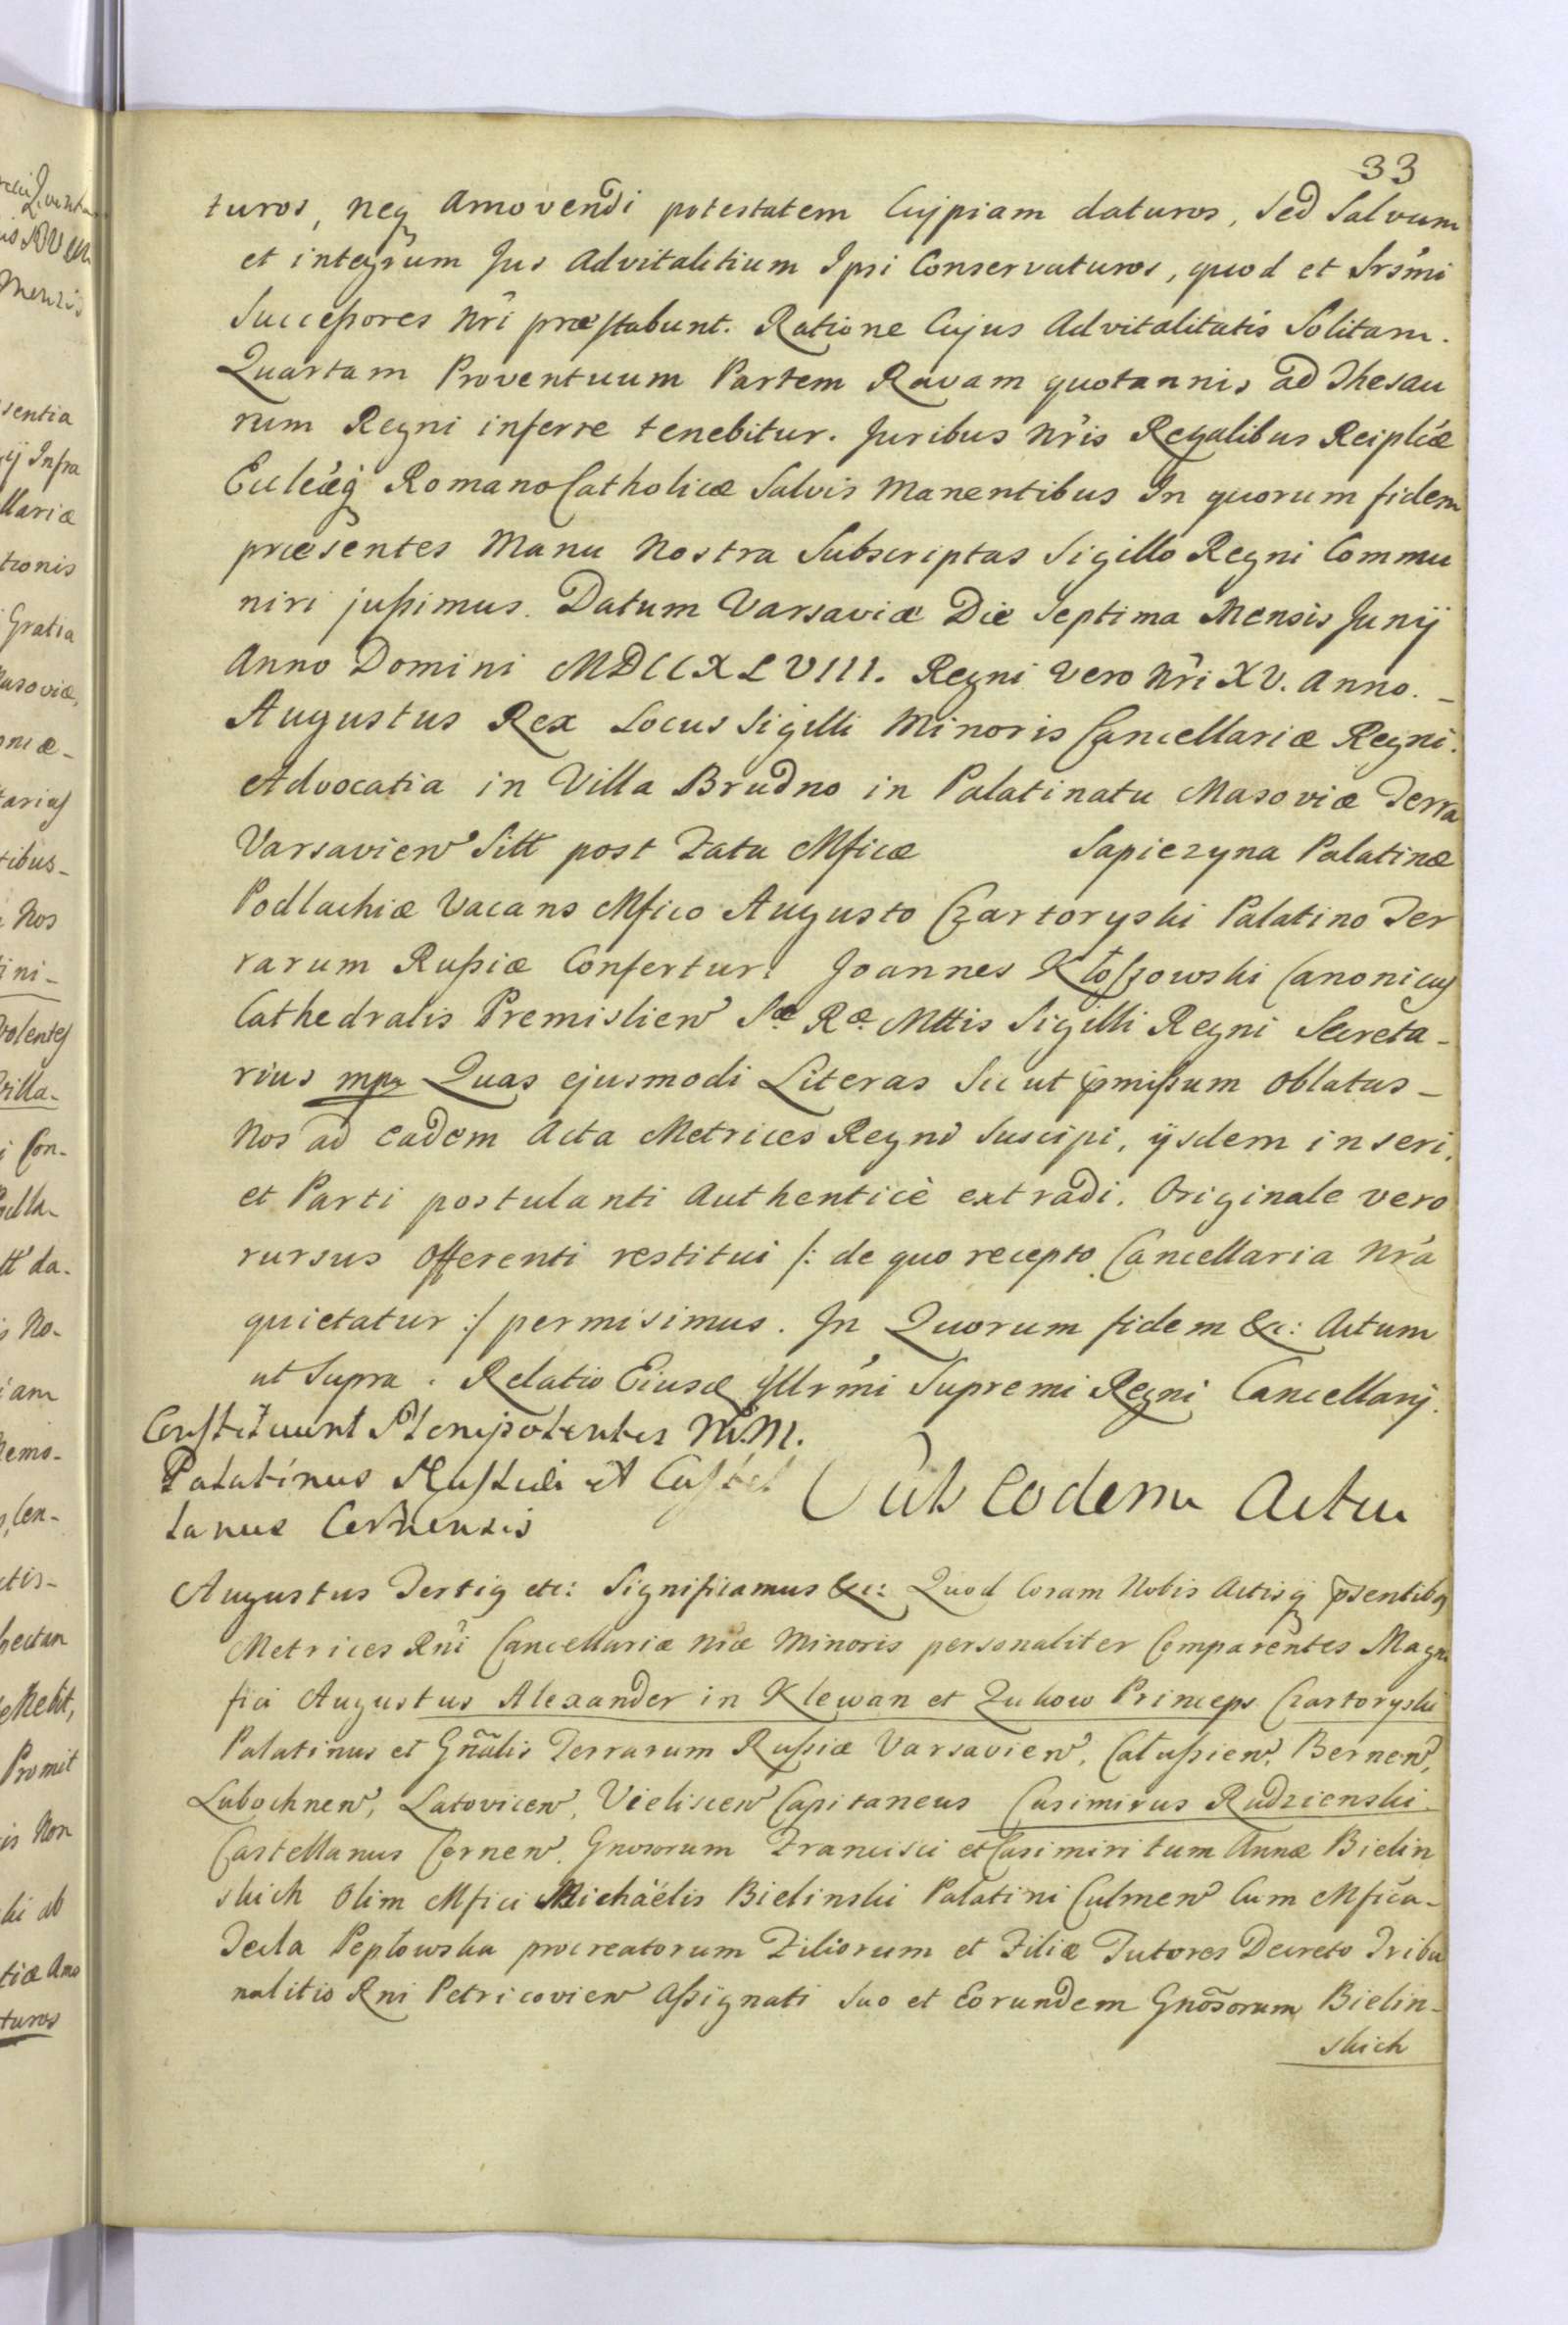 33
turos, neq Amovendi potestatem Cujpiam daturos, sed Salvum
et integrum Jus Advitalitium Ipsi Conservaturos, quod et Srsmi
Successores Nri præstabunt. Ratione Cujus Advitalitatis Solitam.
Quartam Proventuum Partem Ravam quotannis ad Thesau
rum Regni inferre tenebitur. Juribus Nris Regalibus Reiplicæ
Eccleæq Romano Catholicæ Salvis Manentibus In quorum fidem
præsentes Manu Nostra Subscriptas Sigillo Regni Commu
niri jussimus. Datum Varsaviæ Die Septima Mensis Junij
Anno Domini MDCCXLVIII. Regni Vero Nri XV. Anno. _
Augustus Rex Locus Sigilli Minoris Cancellariæ Regni.
Advocatia in Villa Brudno in Palatinatu Masoviæ Terra
Varsavien Sitt post Fata Mficæ Sapiezyna Palatinæ
Podlachiæ Vacans Mfico Augusto Czartoryski Palatino Ter
rarum Russiæ Confertur. Joannes Kłoszowski Canonicus
Cathedralis Premislien Sæ Ræ Mttis Sigilli Regni Secreta_
rius mpr Quas ejusmodi Literas Sic ut pmissum oblatas_
Nos ad eadem Acta Metrices Regni Suscipi, ijsdem inseri,
et Parti postulanti Authenticè extradi. Originale vero
rursus Offerenti restitui /: de quo recepto Cancellaria Nra
quietatur :/ permisimus. In Quorum fidem &c: Actum
ut Supra. Relatio Eiusd Illrmi Supremi Regni Cancellarij.
Constituunt Plenipotentes M.M.
Palatinus Russiæ et Castel
lanus Cernensis
Sub Eodem Actu
Augustus Tertius etc: Significamus &c: Quod Coram Nobis Actisq psentibq
Metrices Rni Cancellariæ Nræ Minoris personaliter Comparentes Magni
fici Augustus Alexander in Klewan et Zukow Princeps Czartoryski
Palatinus et Gnalis Terrarum Russiæ Varsavien, Całussien, Bernen,
Lubochnen, Latovicen, Vieliscen Capitaneus Casimirus Rudzienski
Castellanus Cernen. Gnosorum Francisci et Casimiri tum Annæ Bielin
skich Olim Mfici Michaëlis Bielinski Palatini Culmen Cum Mfica_
Tecla Pepłowska procreatorum Filiorum et Filiæ Tutores Decreto Tribu
nalitio Rni Petricovien Assignati Suo et Eorundem Gnosorum Bielin_
skich